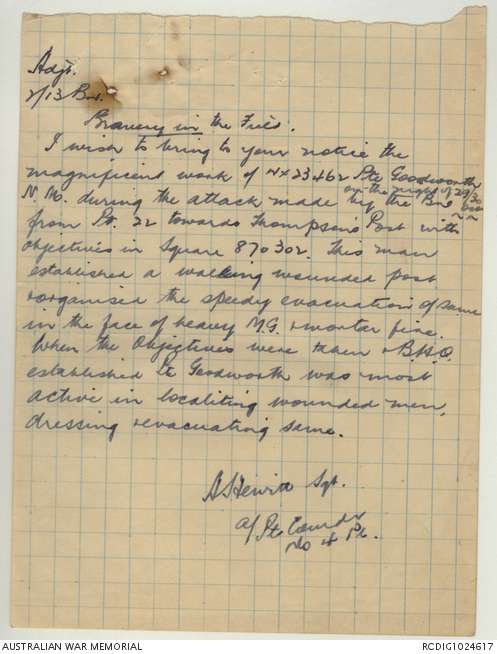 Adjt.
2/13 Bn.
Bravery in the Field.
I wish to bring to your notice the
magnificent work of NX23462 Pte Goodworth
N. M. during the attack made by the Bn on the night of 29/30
from Pt. 22 towards Thompson's Post with
objectives in Square 870302. This man
established a walking wounded post
& organised the speedy evacuation of same
in the face of heavy M.G. & mortar fire.
When the Objectives were taken & B.H.Q.
established Pte Goodworth was most
active in localiting wounded men,
dressing & evacuating same.
A Hewitt Sgt.
A/ Pt Comdr
No 4 Pl.
AUSTRALIAN WAR MEMORIAL
RCDIG1024617